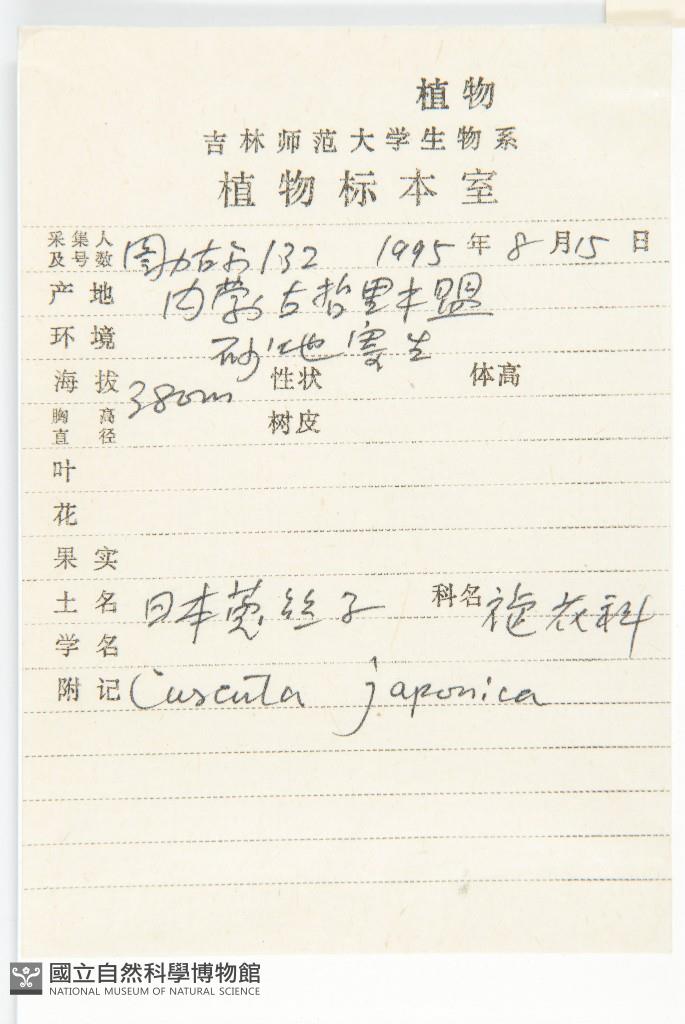 植物
吉林师范大学生物系
植物标本室
采集人及号数 图力古尔 132 1995 年 8 月 15 日
产地 内蒙古哲里木盟
环境 砂地寄生
海拔 380m 性状 体高
胸高直径 树皮
叶
花
果实
土名 日本菟丝子 科名 旋花科
学名
附记 Cuscuta japonica
國立自然科學博物館
NATIONAL MUSEUM OF NATURAL SCIENCE